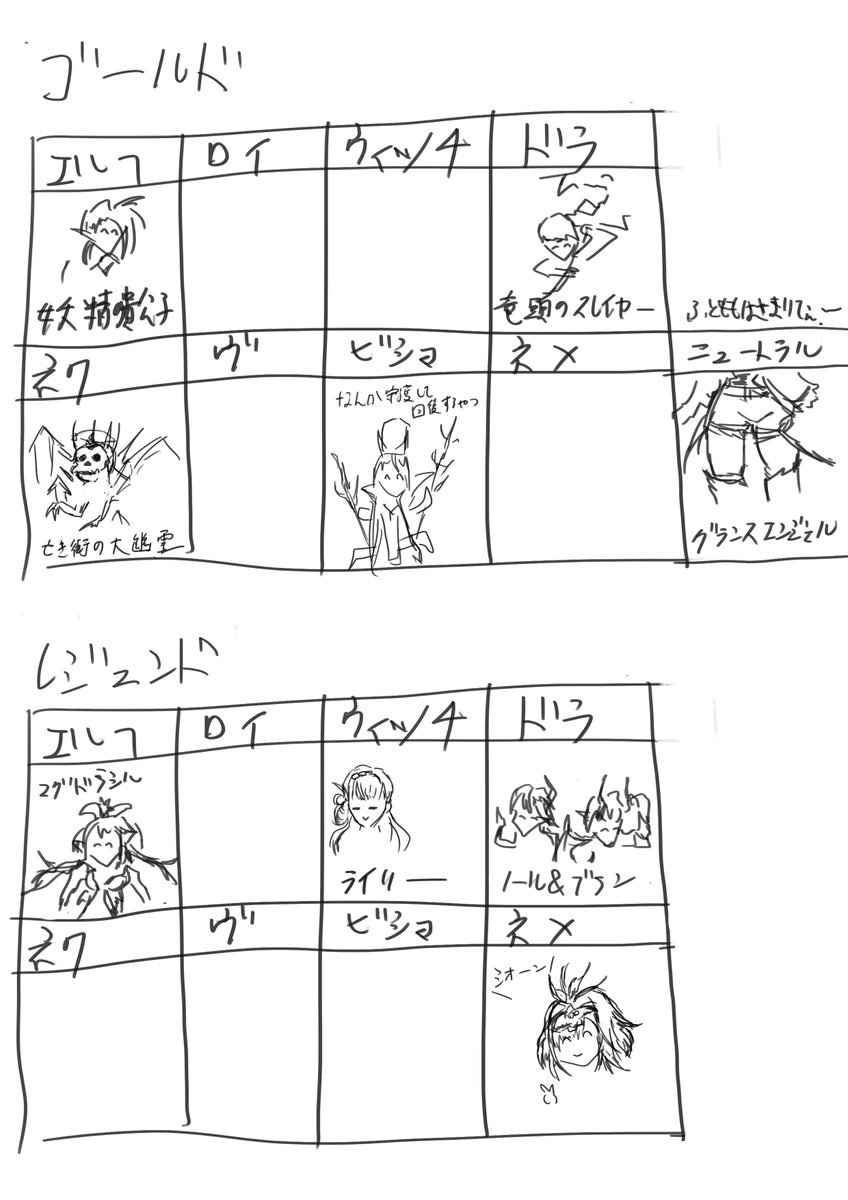 ゴールド
エルフ ロイ ウィッチ ドラ
妖精の貴公子
竜頭のスレイヤー
ふとももはさまりてぇー
ネク ヴ ビショ ネメ ニュートラル
なんか守護して
回復するやつ
亡き街の大幽霊
グランスエンジェル
レジェンド
エルフ ロイ ウィッチ ドラ
ユグドラシル
ライリー
ノール&ブラン
ネク ヴ ビショ ネメ
シオーン!